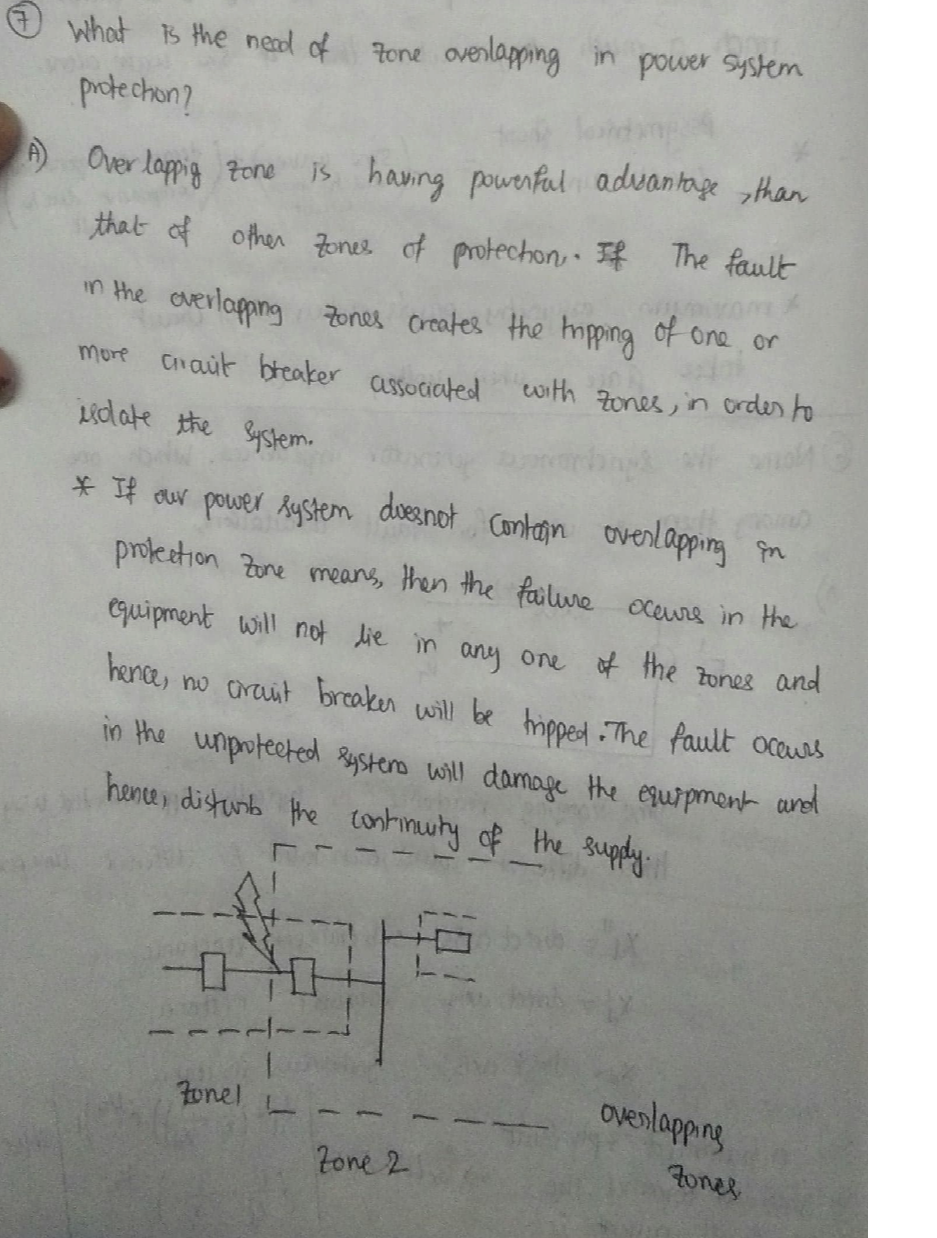 7 What is the need of zone overlapping in power system
protection?
A) Over lappig zone is having powerful advantage, than
that of other zones of protection. If The fault
in the overlapping zones creates the tripping of one or
more circuit breaker associated with zones, in order to
isolate the system.
* If our power system doesnot contain overlapping in
protection zone means, then the failure occurs in the
equipment will not lie in any one of the zones and
hence, no circuit breaker will be tripped. The fault occurs
in the unprotected system will damage the equipment and
hence, disturb the continuity of the supply.
Zone1
Zone 2
overlapping
zones